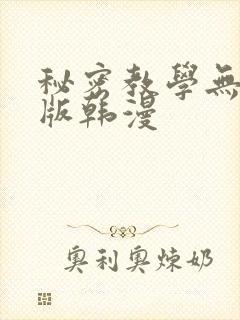 秘密教學無
版韩漫
奥利奥炼奶